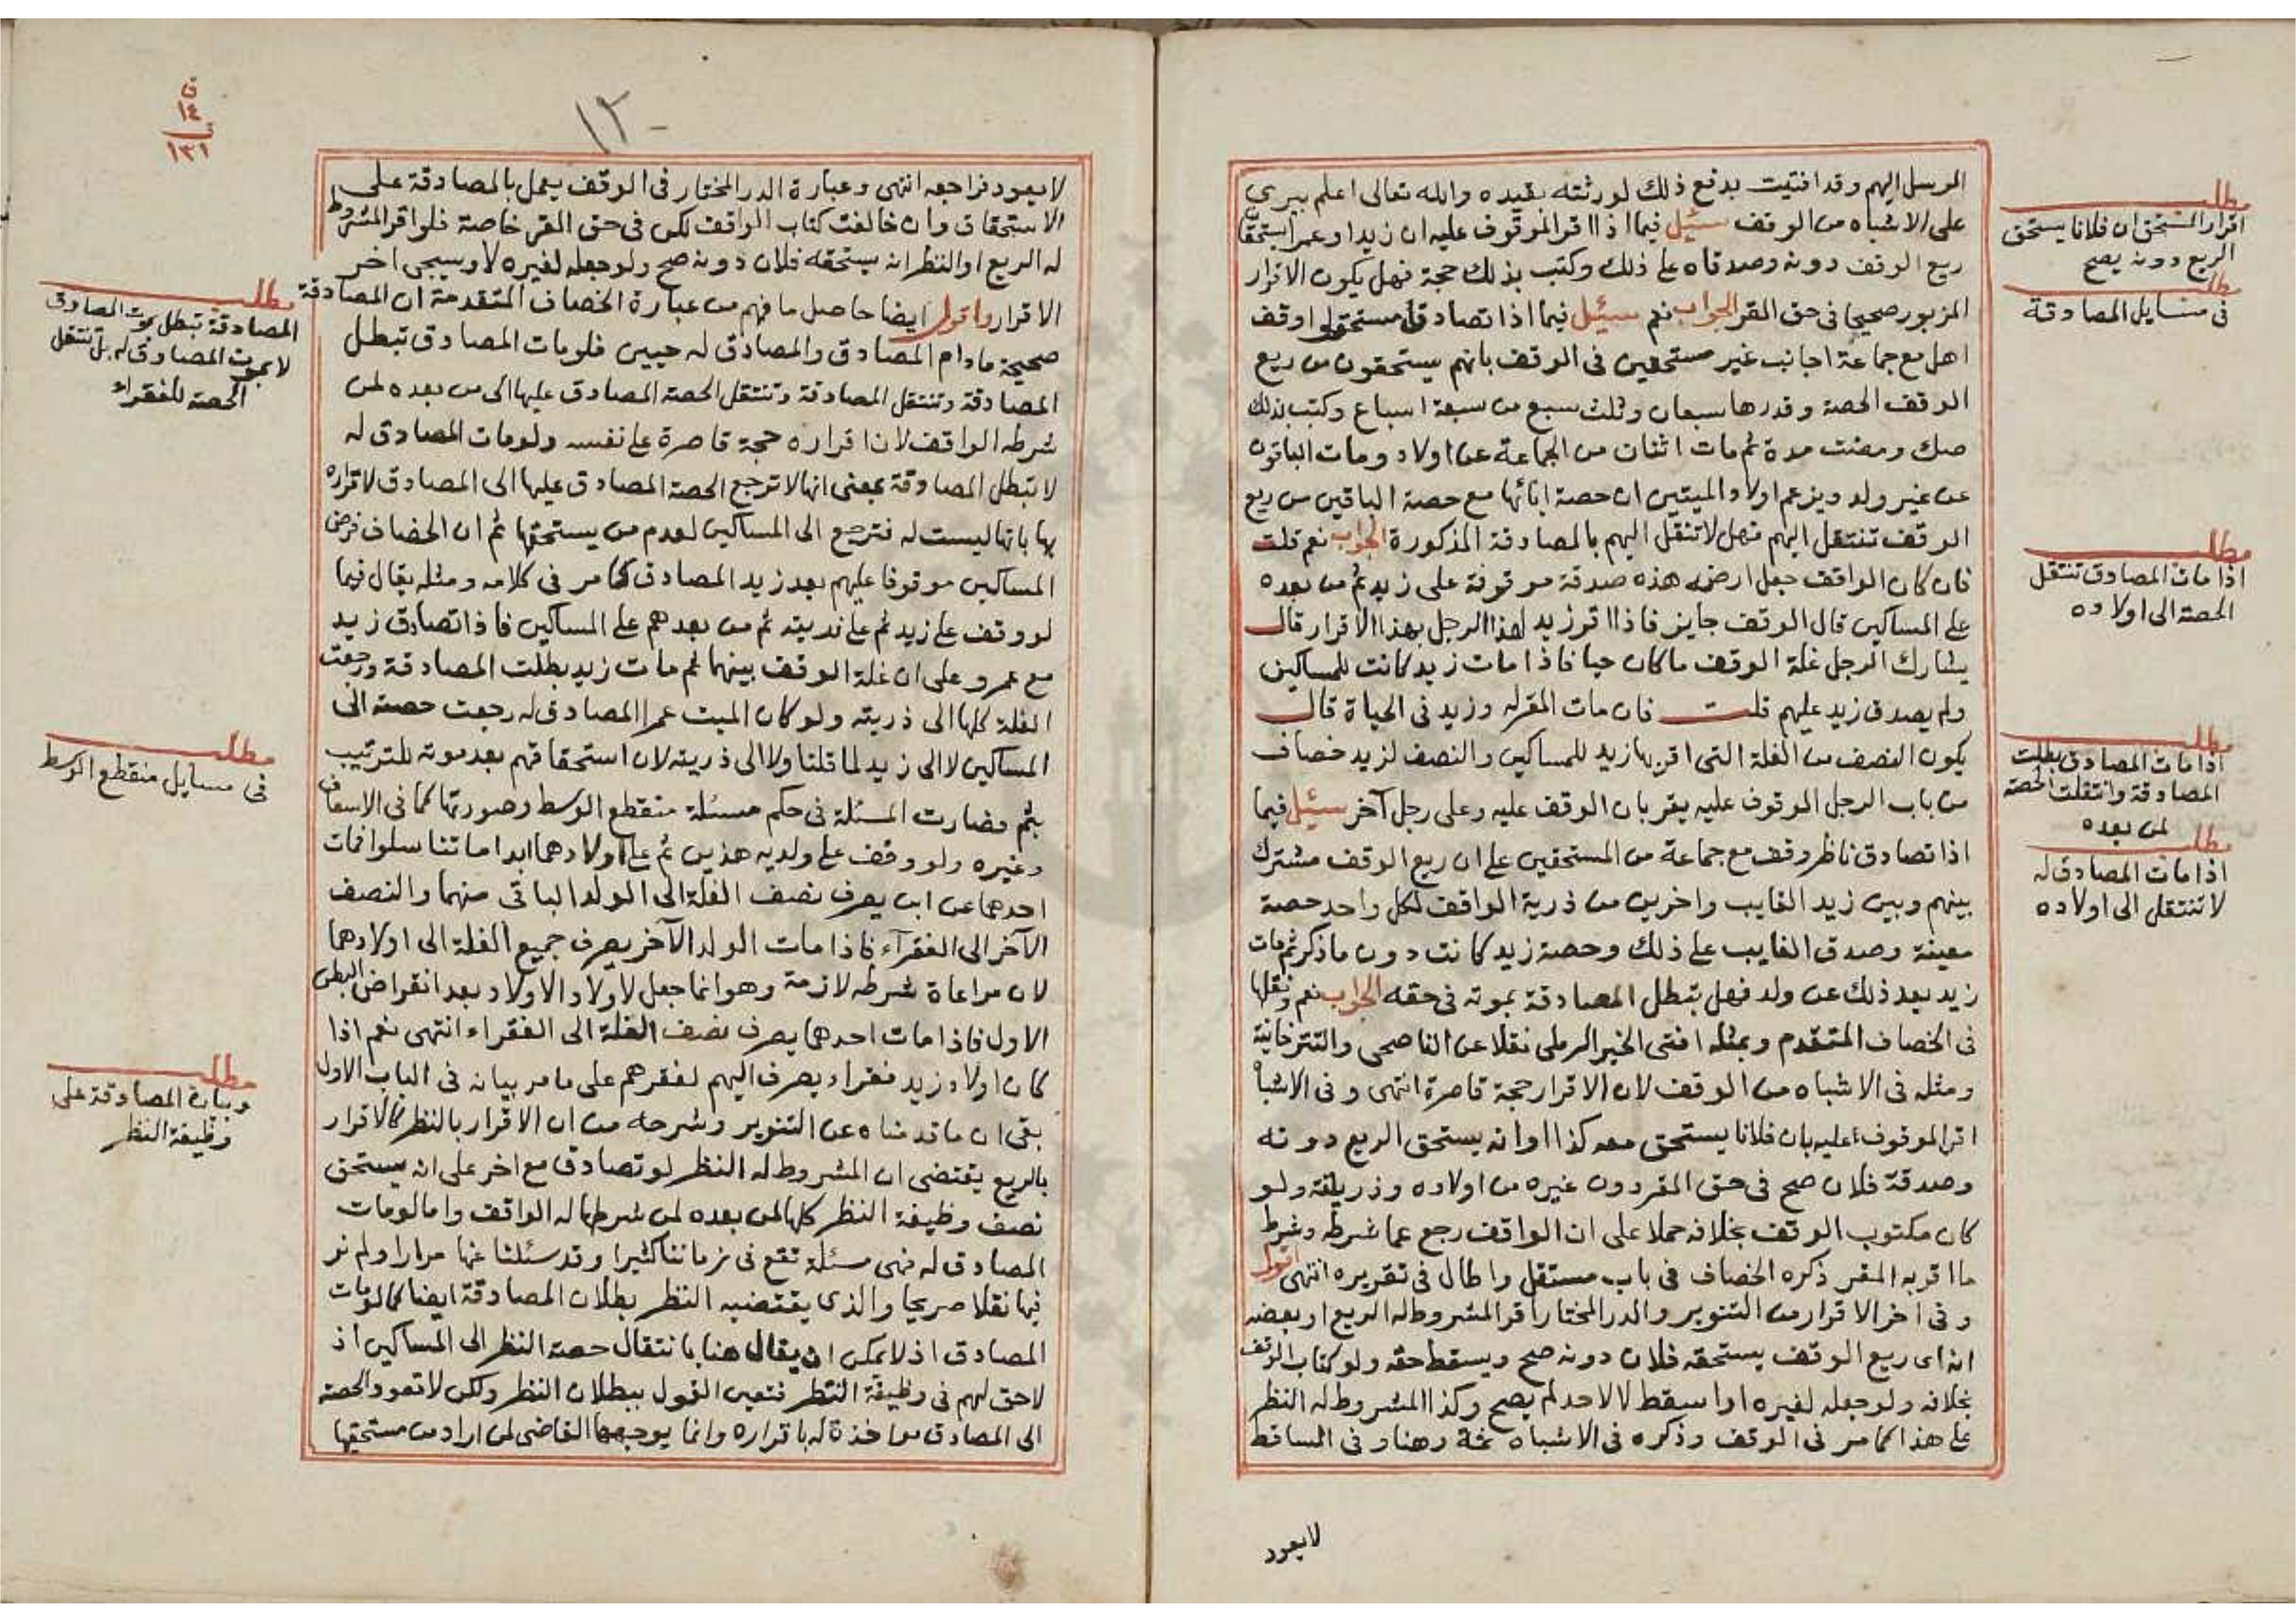 المرسل اليهم وقد افتيت بدفع ذلك لورثته بقيده والله تعالى اعلم بيري
على الاشباه من الوقف سئيل فيما اذا اقر الموقوف عليه ان زيدا وعمرا يستحقان
ريع الوقف دونه وصدقاه على ذلك وكتب بذلك حجة فهل يكون الاقرار
المزبور صحيحا في حق المقر الجواب نعم سئيل فيما اذا تصادق مستحقوا وقف
اهل مع جماعة اجانب غير مستحقين في الوقف بانهم يستحقون من ريع
الوقف الحصة وقدرها سبعان وثلث سبع من سبعة اسباع وكتب بذلك
صك ومضت مدة ثم مات اثنان من الجماعة عن اولاد ومات الباقون
عن غير ولد ويزعم اولاد الميتين ان حصة ابائها مع حصة الباقين من ريع
الوقف تنتقل اليهم فهل لا تنتقل اليهم بالمصادقة المذكورة الجواب نعم قلت
فان كان الواقف جعل ارضه هذه صدقة موقوفة على زيد ثم من بعده
على المساكين قال الوقف جايز فاذا اقر زيد لهذا الرجل بهذا الاقرار قال
يشارك الرجل غلة الوقف ما كان حيا فاذا مات زيد كانت للمساكين
ولم يصدق زيد عليهم قلت فان مات المقر له وزيد في الحياة قال
يكون النصف من الغلة التي اقر بها زيد للمساكين والنصف لزيد خصاف
من باب الرجل الموقوف عليه يقر بان الوقف عليه وعلى رجل آخر سئيل فيما
اذا تصادق ناظر وقف مع جماعة من المستحقين على ان ريع الوقف مشترك
بينهم وبين زيد الغايب واخرين من ذرية الواقف لكل واحد حصة
معينة وصدق الغايب على ذلك وحصة زيد كانت دون ما ذكر ثم مات
زيد بعد ذلك عن ولد فهل تبطل المصادقة بموته في حقه الجواب نعم ونقلها
في الخصاف المتقدم وبمثله افتى الخير الرملي نقلا عن الناصحي والتترخانية
ومثله في الاشباه من الوقف لان الاقرار حجة قاصرة انتهى وفي الاشباه
اقر الموقوف عليه بان فلانا يستحق معه كذا او انه يستحق الريع دونه
وصدقة فلان صح في حق المقر دون غيره من اولاده وذريته ولو
كان مكتوب الوقف بخلافه حملا على ان الواقف رجع عما شرطه وشرط
ما اقر به المقر ذكره الخصاف في باب مستقل واطال في تقريره انتهى اقول
وفي اخر الاقرار من التنوير والدر المختار اقر المشروط له الريع او بعضه
انه اى ريع الوقف يستحقه فلان دونه صح ويسقط حقه ولو كتاب الوقف
بخلافه ولو جعله لغيره او اسقط لا لاحد لم يصح وكذا المشروط له النظر
على هذا كما مر في الوقف وذكره في الاشباه ثمة وهنا وفي الساقط
لا يعود
مطلب
اقرار المستحق ان فلانا يستحق
الريع دونه يصح
مطلب
في مسايل المصادقة
مطلب
اذا مات المصادق تنتقل
الحصة الى اولاده
مطلب
اذا مات المصادق بطلت
المصادقة وانتقلت الحصة
لمن بعده
مطلب
اذا مات المصادق له
لا تنتقل الى اولاده
١٣٠
١٤
١٣١
لا يعود فراجعه انتهى وعبارة الدر المختار في الوقف يعمل بالمصادقة على
الاستحقاق وان خالفت كتاب الواقف لكن في حق المقر خاصة فلو اقر المشروط
له الريع او النظر انه يستحقه فلان دونه صح ولو جعله لغيره لا وسيجى اخر
الاقرار واقول ايضا حاصل ما فهم من عبارة الخصاف المتقدمة ان المصادقة
صحيحة مادام المصادق والمصادق له حيين فلو مات المصادق تبطل
المصادقة وتنتقل المصادقة وتنتقل الحصة المصادق عليها الى من بعده لمن
شرطه الواقف لان اقراره حجة قاصرة على نفسه ولو مات المصادق له
لا تبطل المصادقة بمعنى انها لا ترجع الحصة المصادق عليها الى المصادق لاقراره
بها بانها ليست له فترجع الى المساكين لعدم من يستحقها ثم ان الخصاف فرض
المساكين موقوفا عليهم بعد زيد المصادق كما مر في كلامه ومثله يقال فيما
لو وقف على زيد ثم على ذريته ثم من بعدهم على المساكين فاذا تصادق زيد
مع عمرو على ان غلة الوقف بينهما ثم مات زيد بطلت المصادقة ورجعت
الغلة كلها الى ذريته ولو كان الميت عمرا المصادق له رجعت حصته الى
المساكين لا الى زيد لما قلنا ولا الى ذريته لان استحقاقهم بعد موته للترتيب
بثم فصارت المسئلة في حكم مسئلة منقطع الوسط وصورتها كما في الاسعاف
وغيره ولو وقف على ولديه هذين ثم على اولادهما ابدا ما تناسلوا فمات
احدهما عن ابن يصرف نصف الغلة الى الولد الباقي منهما والنصف
الآخر الى الفقرآء فاذا مات الولد الآخر يصرف جميع الغلة الى اولادهما
لان مراعاة شرطه لازمة وهو انما جعل لاولاد الاولاد بعد انقراض البطن
الاول فاذا مات احدهما يصرف نصف الغلة الى الفقراء انتهى نعم اذا
كان اولاد زيد فقراء يصرف اليهم لفقرهم على ما مر بيانه في الباب الاول
بقى ان ما قدمناه عن التنوير وشرحه من ان الاقرار بالنظر كالاقرار
بالريع يقتضى ان المشروط له النظر لو تصادق مع اخر على انه يستحق
نصف وظيفة النظر كلها لمن بعده لمن شرطها له الواقف واما لو مات
المصادق له فهى مسئلة تقع في زماننا كثيرا وقد سئلنا عنها مرارا ولم نر
فيها نقلا صريحا والذى يقتضيه النظر بطلان المصادقة ايضا كما لو مات
المصادق اذ لا يمكن ان يقال هنا بانتقال حصة النظر الى المساكين اذ
لا حق لهم في وظيفة النظر فتعين القول ببطلان النظر ولكن لا تعود الحصة
الى المصادق مواخذة له باقراره وانما يوجهها القاضى لمن اراد من مستحقها
مطلب
المصادقة تبطل بموت المصادق
لا بموت المصادق له بل تنتقل
الحصة للفقراء
مطلب
في مسايل منقطع الوسط
مطلب
وبيان المصادقة على
وظيفة النظر